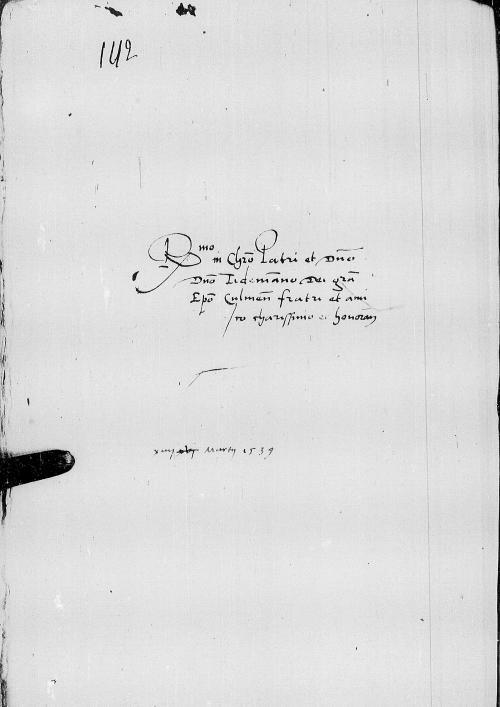 142
R mo in Chro Patri et Dno
Dno Tidemanno Dei gra
Epo Culmen fratri et ami
co charissimo et honoran
Martij 1539